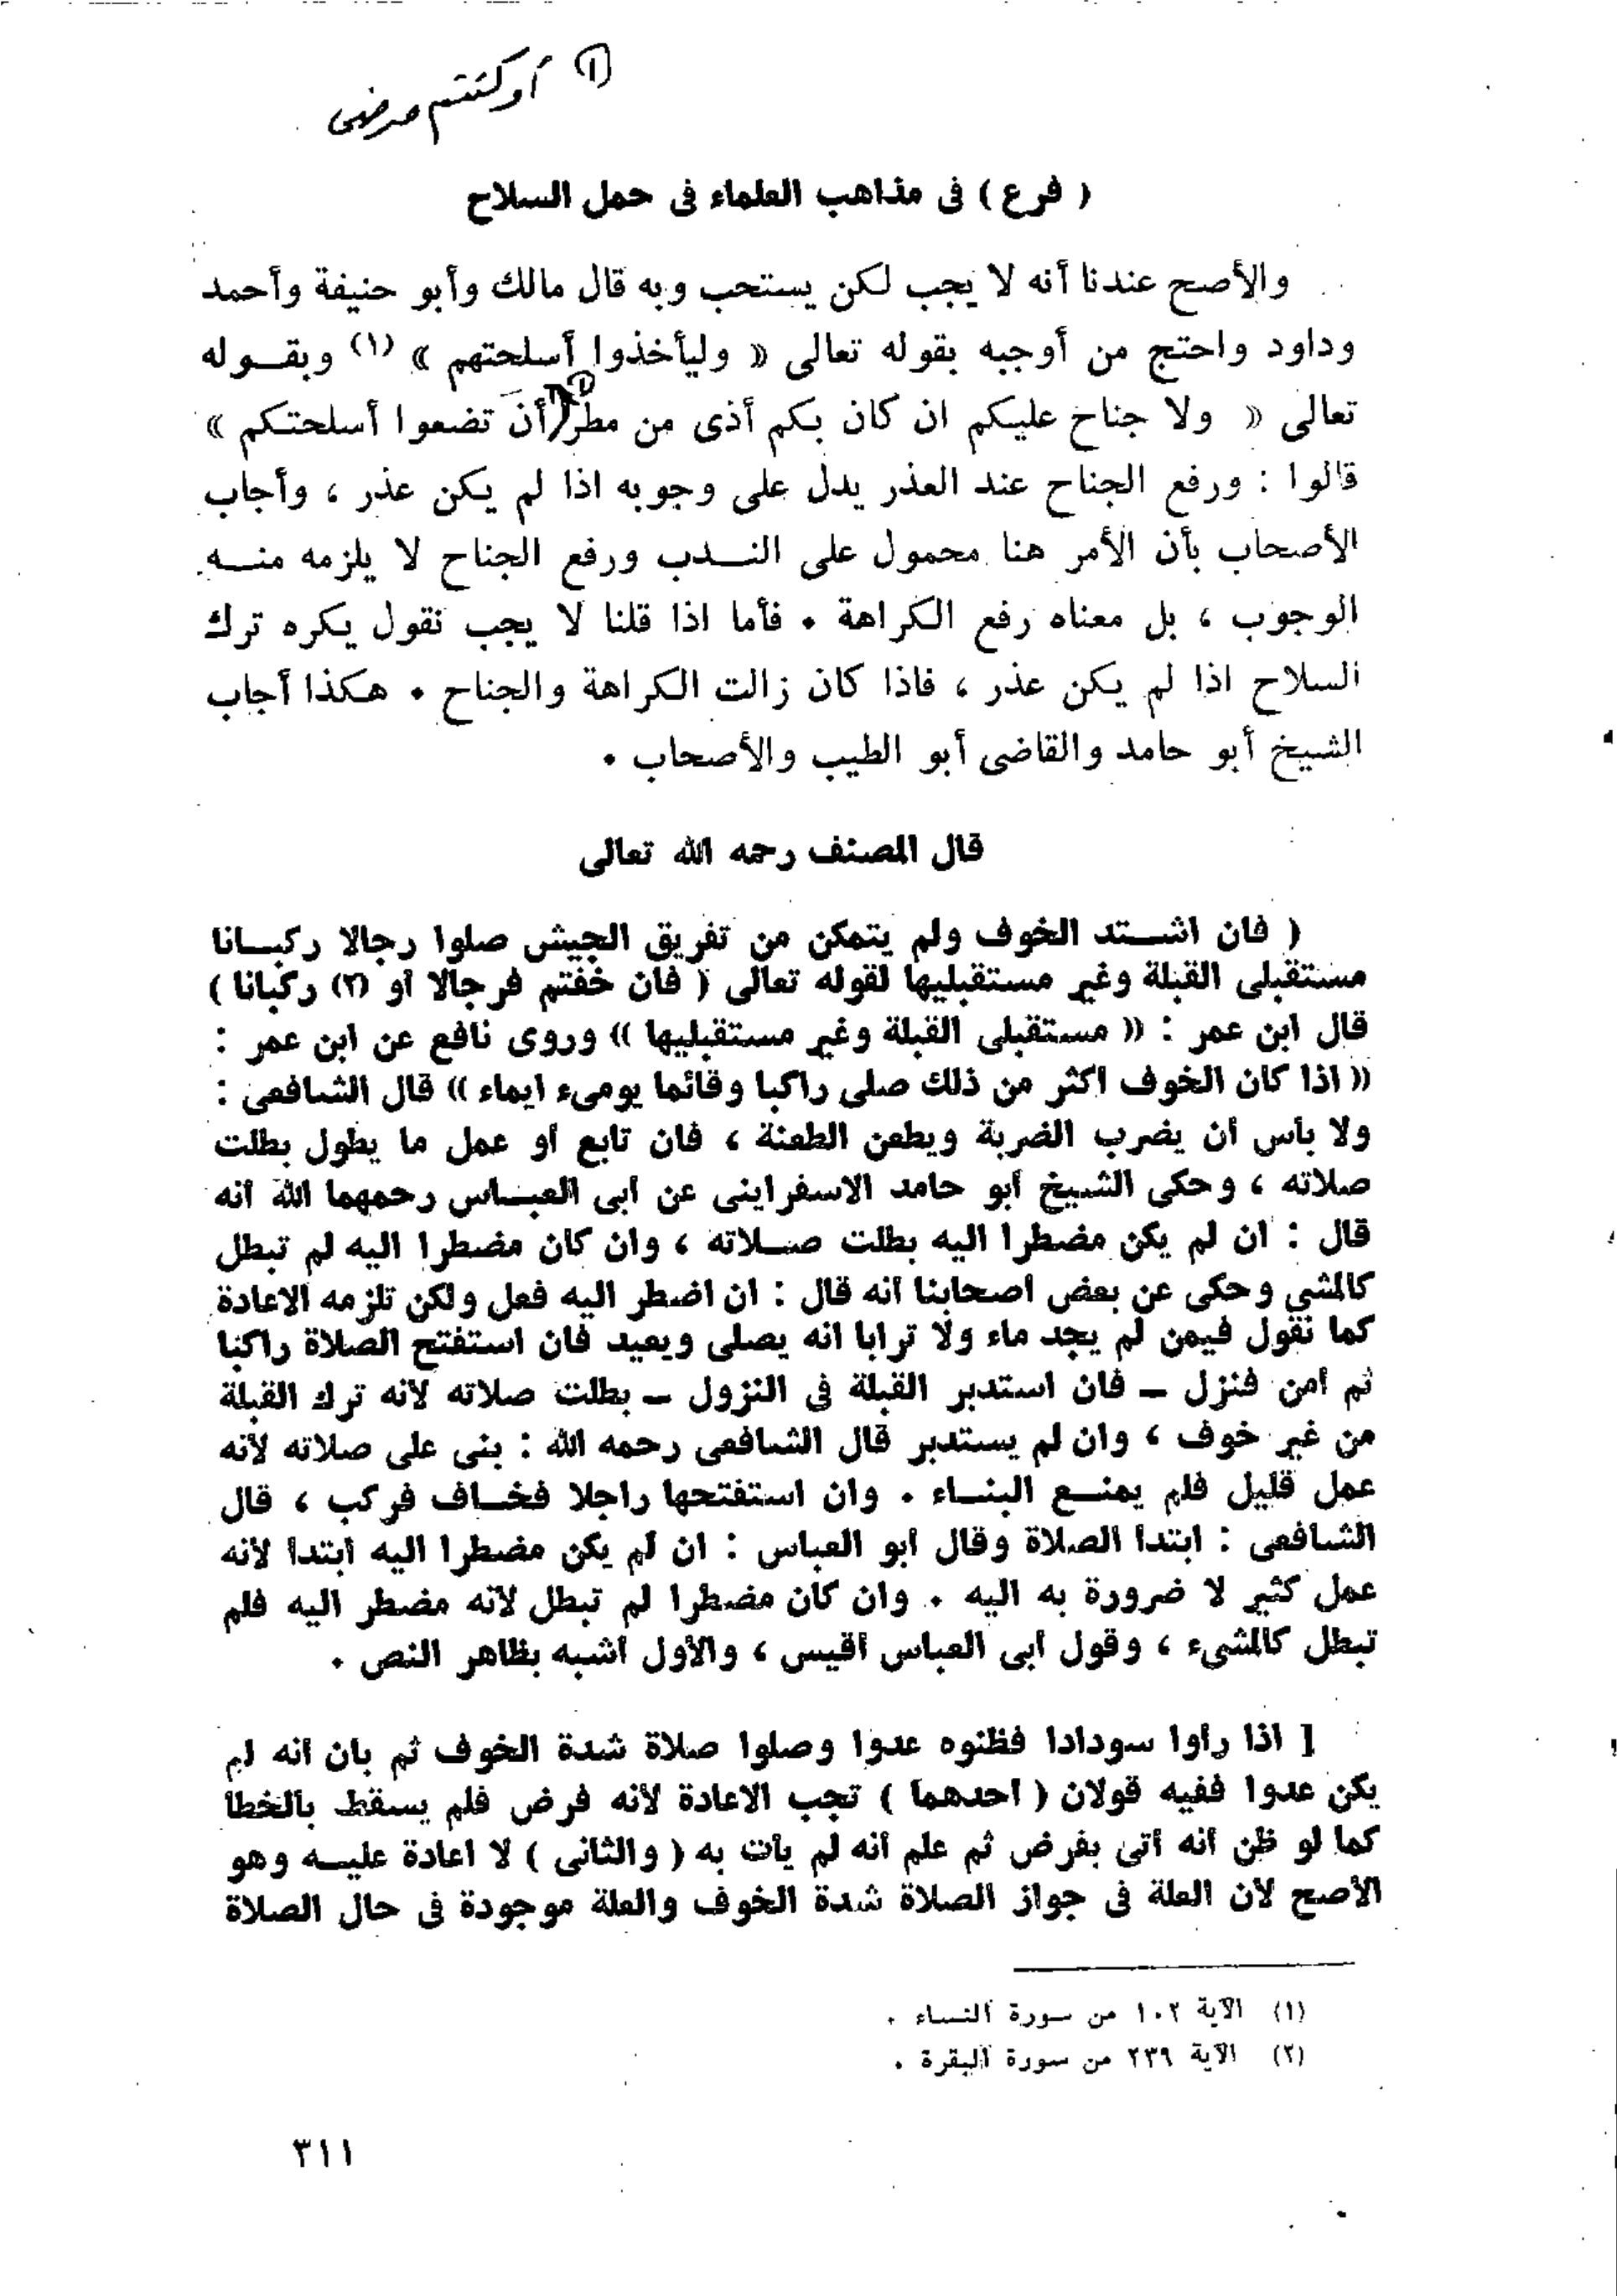 (١) أو كنتم مرضى
( فرع ) فى مذاهب العلماء فى حمل السلاح
والأصح عندنا أنه لا يجب لكن يستحب وبه قال مالك وأبو حنيفة وأحمد
وداود واحتج من أوجبه بقوله تعالى « وليأخذوا أسلحتهم » (١) وبقـــوله
تعالى « ولا جناح عليكم ان كان بكم أذى من مطر (١) أن تضعوا أسلحتكم »
قالوا : ورفع الجناح عند العذر يدل على وجوبه اذا لم يكن عذر ، وأجاب
الأصحاب بأن الأمر هنا محمول على النـــدب ورفع الجناح لا يلزمه منـــه
الوجوب ، بل معناه رفع الكراهة . فأما اذا قلنا لا يجب نقول يكره ترك
السلاح اذا لم يكن عذر ، فاذا كان زالت الكراهة والجناح . هكذا أجاب
الشيخ أبو حامد والقاضى أبو الطيب والأصحاب .
قال المصنف رحمه الله تعالى
( فان اشـــتد الخوف ولم يتمكن من تفريق الجيش صلوا رجالا ركبـــانا
مستقبلى القبلة وغير مستقبليها لقوله تعالى ( فان خفتم فرجالا أو (٢) ركبانا )
قال ابن عمر : « مستقبلى القبلة وغير مستقبليها » وروى نافع عن ابن عمر :
« اذا كان الخوف أكثر من ذلك صلى راكبا وقائما يومىء ايماء » قال الشافعى :
ولا باس أن يضرب الضربة ويطعن الطعنة ، فان تابع أو عمل ما يطول بطلت
صلاته ، وحكى الشيخ أبو حامد الاسفراينى عن أبى العبـــاس رحمهما الله أنه
قال : ان لم يكن مضطرا اليه بطلت صـــلاته ، وان كان مضطرا اليه لم تبطل
كالمشى وحكى عن بعض أصحابنا أنه قال : ان اضطر اليه فعل ولكن تلزمه الاعادة
كما نقول فيمن لم يجد ماء ولا ترابا انه يصلى ويعيد فان استفتح الصلاة راكبا
ثم أمن فنزل ــ فان استدبر القبلة فى النزول ــ بطلت صلاته لأنه ترك القبلة
من غير خوف ، وان لم يستدبر قال الشافعى رحمه الله : بنى على صلاته لأنه
عمل قليل فلم يمنـــع البنـــاء . وان استفتحها راجلا فخـــاف فركب ، قال
الشافعى : ابتدا الصلاة وقال أبو العباس : ان لم يكن مضطرا اليه ابتدا لأنه
عمل كثير لا ضرورة به اليه . وان كان مضطرا لم تبطل لأنه مضطر اليه فلم
تبطل كالمشىء ، وقول أبى العباس أقيس ، والأول أشبه بظاهر النص .
[ اذا رأوا سودادا فظنوه عدوا وصلوا صلاة شدة الخوف ثم بان أنه لم
يكن عدوا ففيه قولان ( أحدهما ) تجب الاعادة لأنه فرض فلم يسقط بالخطا
كما لو ظن أنه أتى بفرض ثم علم أنه لم يأت به ( والثانى ) لا اعادة عليـــه وهو
الأصح لأن العلة فى جواز الصلاة شدة الخوف والعلة موجودة فى حال الصلاة
(١) الآية ١٠٢ من سورة النساء .
(٢) الآية ٢٣٩ من سورة البقرة .
٣١١